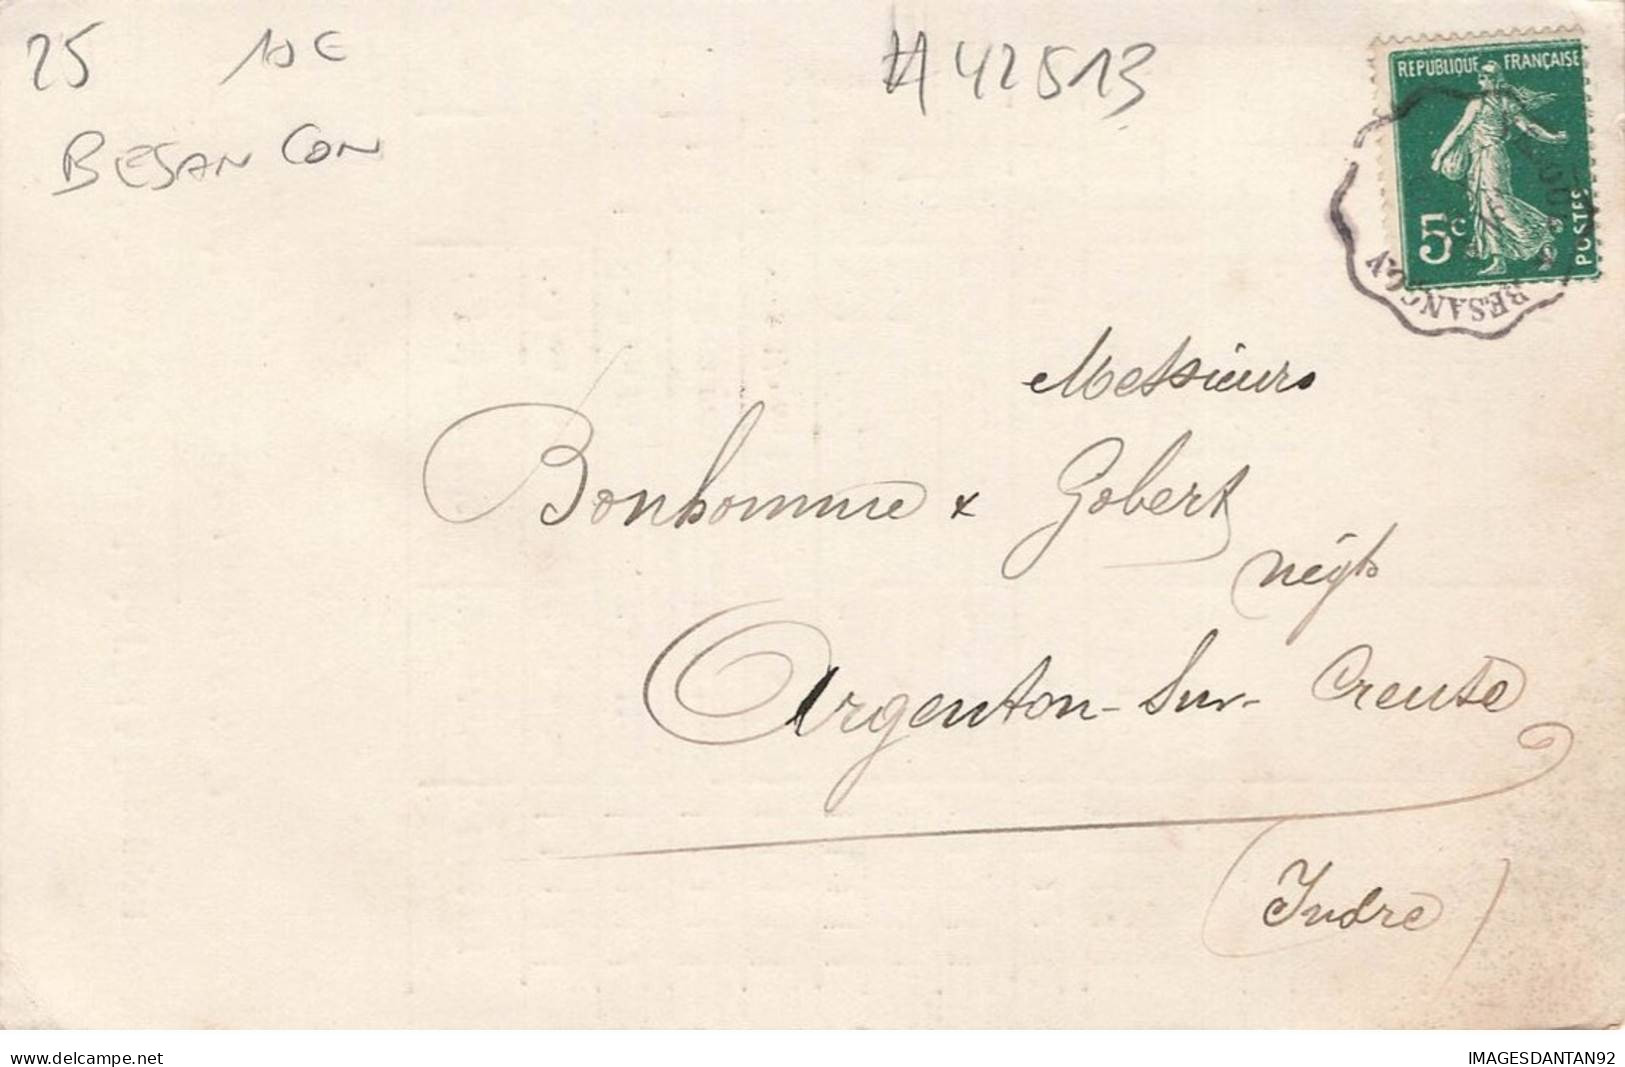 25 10€ #42513
BESANCON
REPUBLIQUE FRANÇAISE
5c
POSTES
BESANÇON
Messieurs
Bonhomme & Gobert
négts
Argenton-Sur-Creuse
(Indre)
www.delcampe.net IMAGESDANTAN92